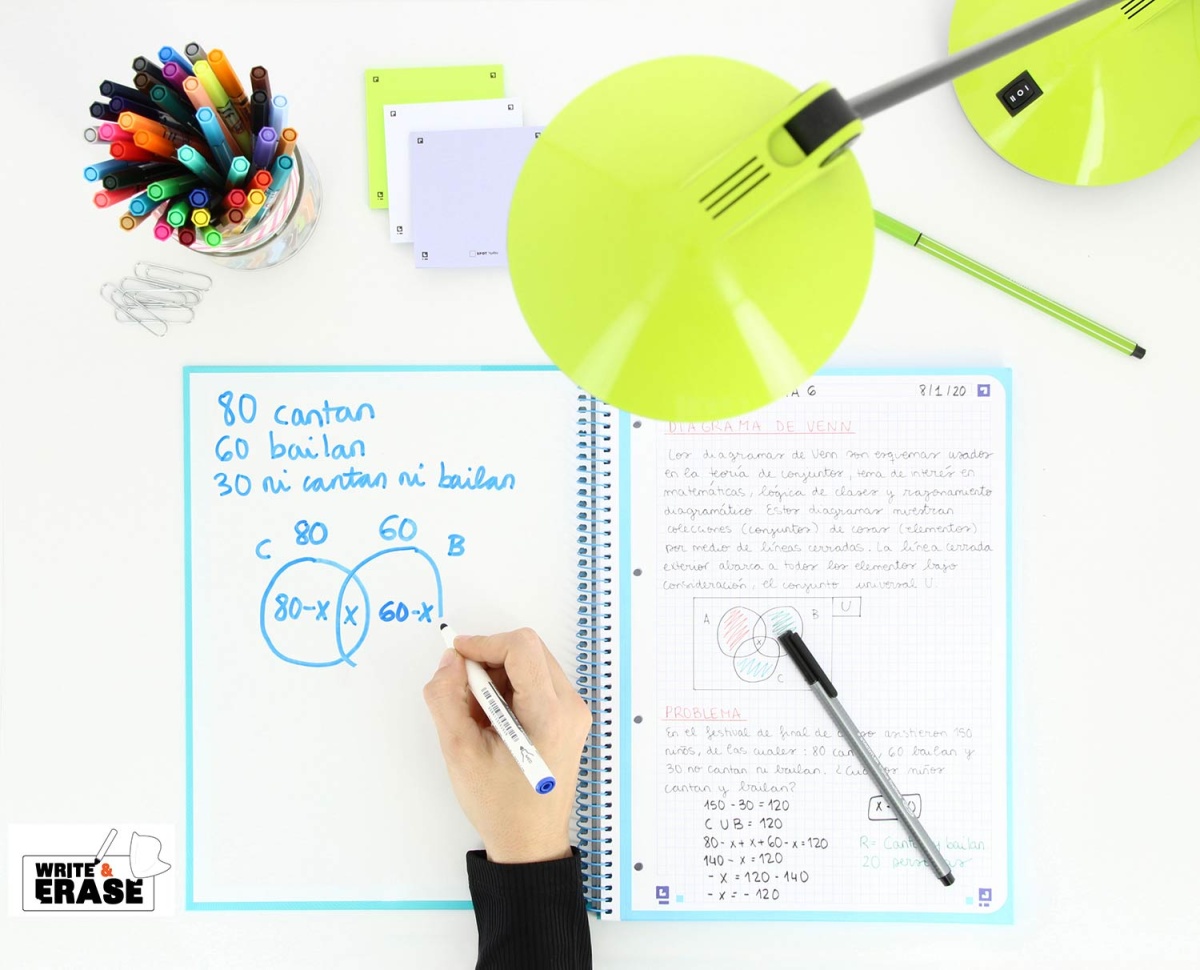 80 cantan
60 bailan
30 ni cantan ni bailan
80 60
C B
80-x x 60-x
A 6 8/1/20
DIAGRAMA DE VENN
Los diagramas de Venn son esquemas usados
en la teoría de conjuntos, tema de interés en
matemáticas, lógica de clases y razonamiento
diagramático. Estos diagramas muestran
colecciones (conjuntos) de cosas (elementos)
por medio de líneas cerradas. La línea cerrada
exterior abarca a todos los elementos bajo
consideración, el conjunto universal U.
A B U
x
C
PROBLEMA
En el festival de final de asistieron 150
niños, de los cuales: 80 60 bailan y
30 no cantan ni bailan. niños
cantan y bailan?
150 - 30 = 120
C U B = 120
80 - x + x + 60 - x = 120
140 - x = 120
- x = 120 - 140
- x = - 120
R= bailan
20
WRITE &
ERASE